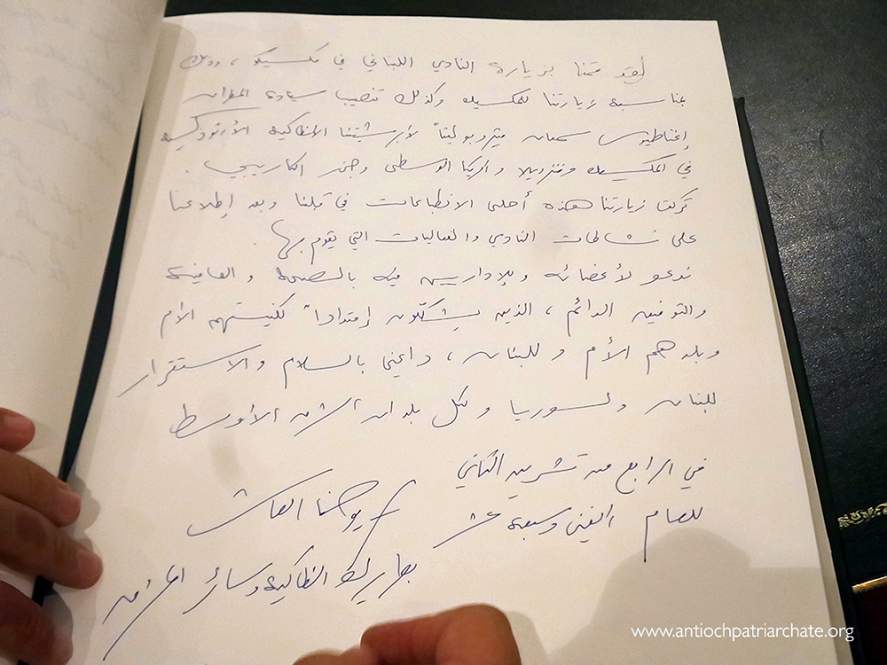 لقد قمنا بزيارة النادي اللبناني في مكسيكو، وذلك
بمناسبة زيارتنا للمكسيك وكذلك تنصيب سيادة المطران
إغناطيوس سمعان متروبوليتاً لأبرشيتنا الانطاكية الأرثوذكسية
في المكسيك وفنزويلا وامريكا الوسطى وجزر الكاريبي.
تركت زيارتنا هذه أحلى الانطباعات في قلبنا وبعد إطلاعنا
على نشاطات النادي والفعاليات التي يقوم بها.
ندعو لأعضائه وللإداريين فيه بالصحة والعافية
والتوفيق الدائم، الذين يشكّلون إمتداداً لكنيستهم الأم
وبلدهم الأم وللبنان، داعين بالسلام والاستقرار
للبنان ولسوريا ولكل بلدان الشرق الأوسط
في الرابع من تشرين الثاني
للعام الفين وسبعة عشر
يوحنا العاشر
بطريرك انطاكية وسائر المشرق
www.antiochpatriarchate.org